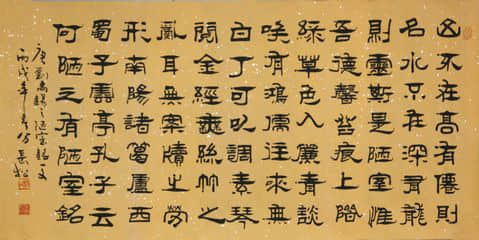 山不在高有僊則
名水不在深有龍
則靈斯是陋室惟
吾德馨苔痕上階
綠草色入簾青談
笑有鴻儒往來無
白丁可以調素琴
閱金經無絲竹之
亂耳無案牘之勞
形南陽諸葛廬西
蜀子雲亭孔子云
何陋之有陋室銘
唐劉禹錫之陋室銘文
丙戌年